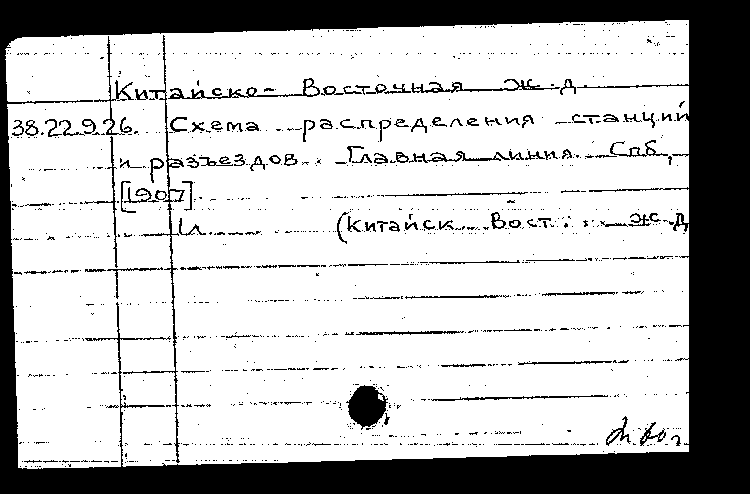 Китайско-Восточная ж.д.
38.22.9.26. Схема распределения станций
и разъездов. Главная линия. Спб,
[1907]
1л. (Китайск. Вост. ж.д